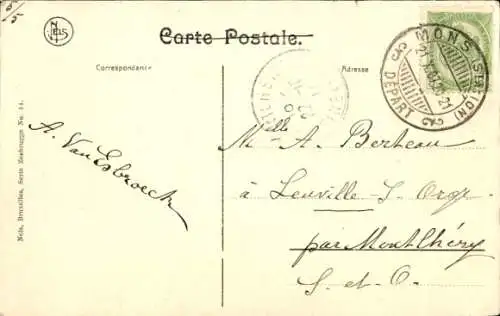 5/5
NELS
Carte Postale.
Correspondance
Adresse
MONS (STATION)
DÉPART
Nels, Bruxelles, Serie Zeebrugge No. 14.
A. Van Esbroeck
Melle M-A. Berteau
à Leuville-S. Orge
par Montlhéry
S.-et-O.